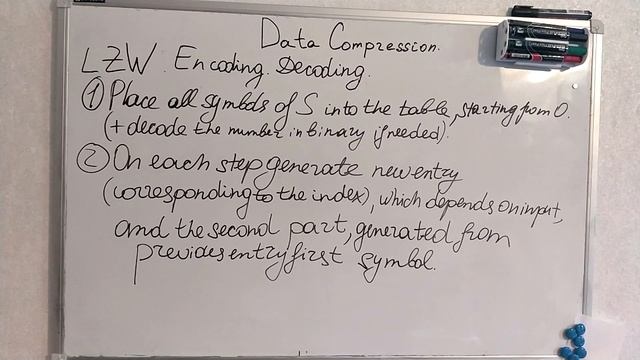 Data Compression.
LZW. Encoding. Decoding.
① Place all symbols of S into the table, starting from 0.
(+ decode the number in binary if needed).
② On each step generate new entry
(corresponding to the index), which depends on input,
and the second part, generated from
previoes entry first symbol.